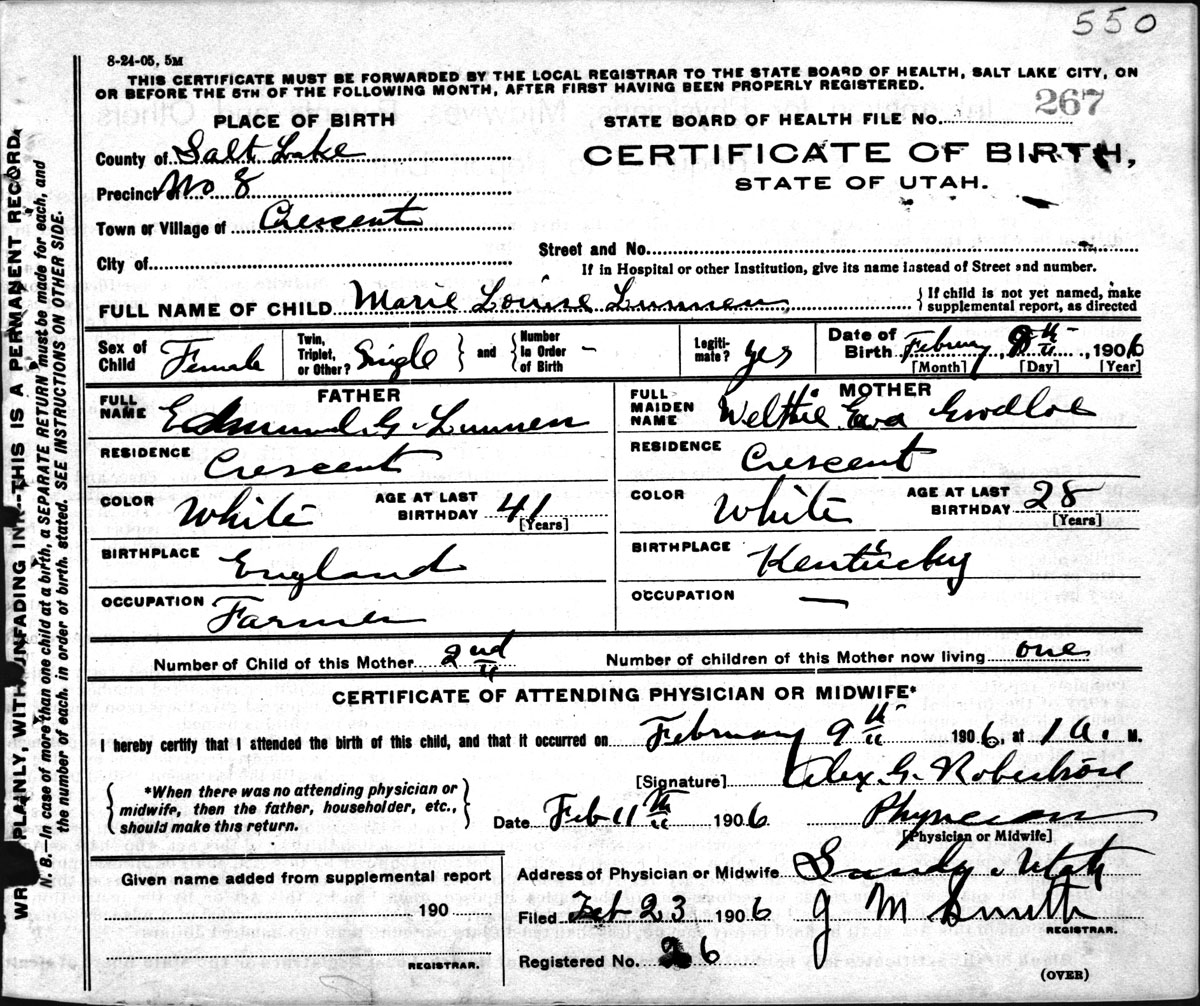 550
8-24-05, 5M
THIS CERTIFICATE MUST BE FORWARDED BY THE LOCAL REGISTRAR TO THE STATE BOARD OF HEALTH, SALT LAKE CITY, ON
OR BEFORE THE 5TH OF THE FOLLOWING MONTH, AFTER FIRST HAVING BEEN PROPERLY REGISTERED.
PLACE OF BIRTH
STATE BOARD OF HEALTH FILE No. 267
County of Salt Lake
CERTIFICATE OF BIRTH,
Precinct of No 8
STATE OF UTAH.
Town or Village of Crescent
Street and No.
City of
If in Hospital or other Institution, give its name instead of Street and number.
FULL NAME OF CHILD Marie Louise Lunnen
{ If child is not yet named, make supplemental report, as directed
Sex of Child Female
Twin, Triplet, or Other? Single } and { Number In Order of Birth –
Legitimate? yes
Date of Birth February 9th, 1906
[Month] [Day] [Year]
FATHER
FULL NAME Edmund G. Lunnen
RESIDENCE Crescent
COLOR White AGE AT LAST BIRTHDAY 41 [Years]
BIRTHPLACE England
OCCUPATION Farmer
MOTHER
FULL MAIDEN NAME Welthie Eva
RESIDENCE Crescent
COLOR White AGE AT LAST BIRTHDAY 28 [Years]
BIRTHPLACE Kentucky
OCCUPATION —
Number of Child of this Mother 2nd Number of children of this Mother now living one
CERTIFICATE OF ATTENDING PHYSICIAN OR MIDWIFE*
I hereby certify that I attended the birth of this child, and that it occurred on February 9th 1906, at 1 A. M.
[Signature] Alex G. Robertson
{ *When there was no attending physician or midwife, then the father, householder, etc., should make this return. }
Date Feb 11th 1906 Physician
[Physician or Midwife]
Address of Physician or Midwife Sandy Utah
Given name added from supplemental report
190
REGISTRAR.
Filed Feb 23 1906 J M Smith
REGISTRAR.
Registered No. 26
(OVER)
WRITE PLAINLY, WITH UNFADING INK--THIS IS A PERMANENT RECORD.
N. B.—In case of more than one child at a birth, a SEPARATE RETURN must be made for each, and
the number of each, in order of birth, stated. SEE INSTRUCTIONS ON OTHER SIDE.